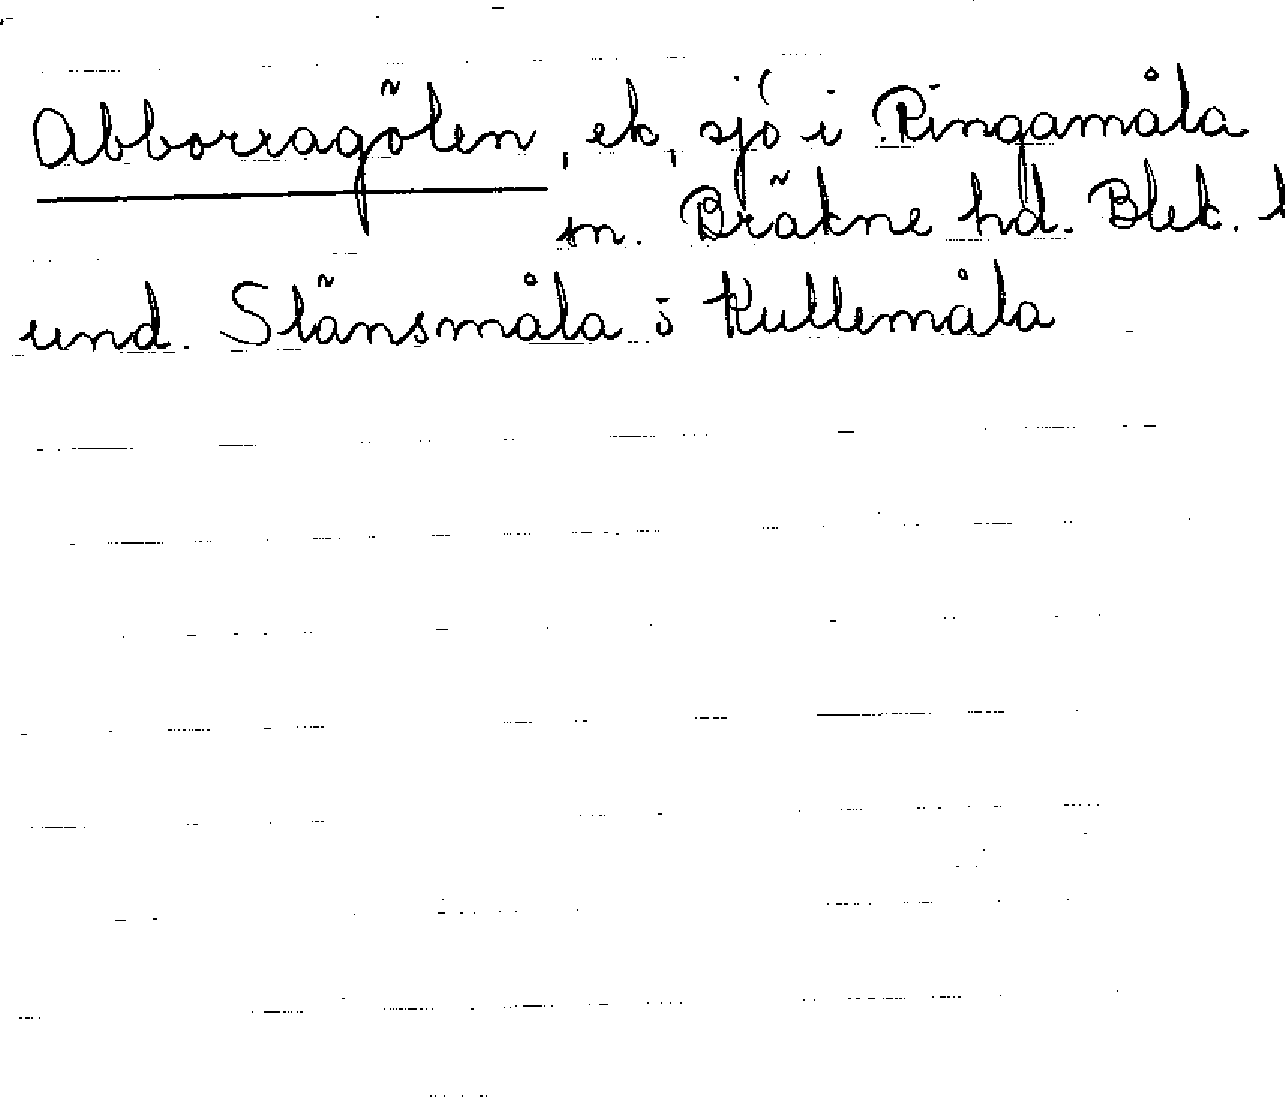 Abborragölen, ek, sjö i Ringamåla
sn. Bräkne hd. Blek. l
und. Slänsmåla o Kullemåla